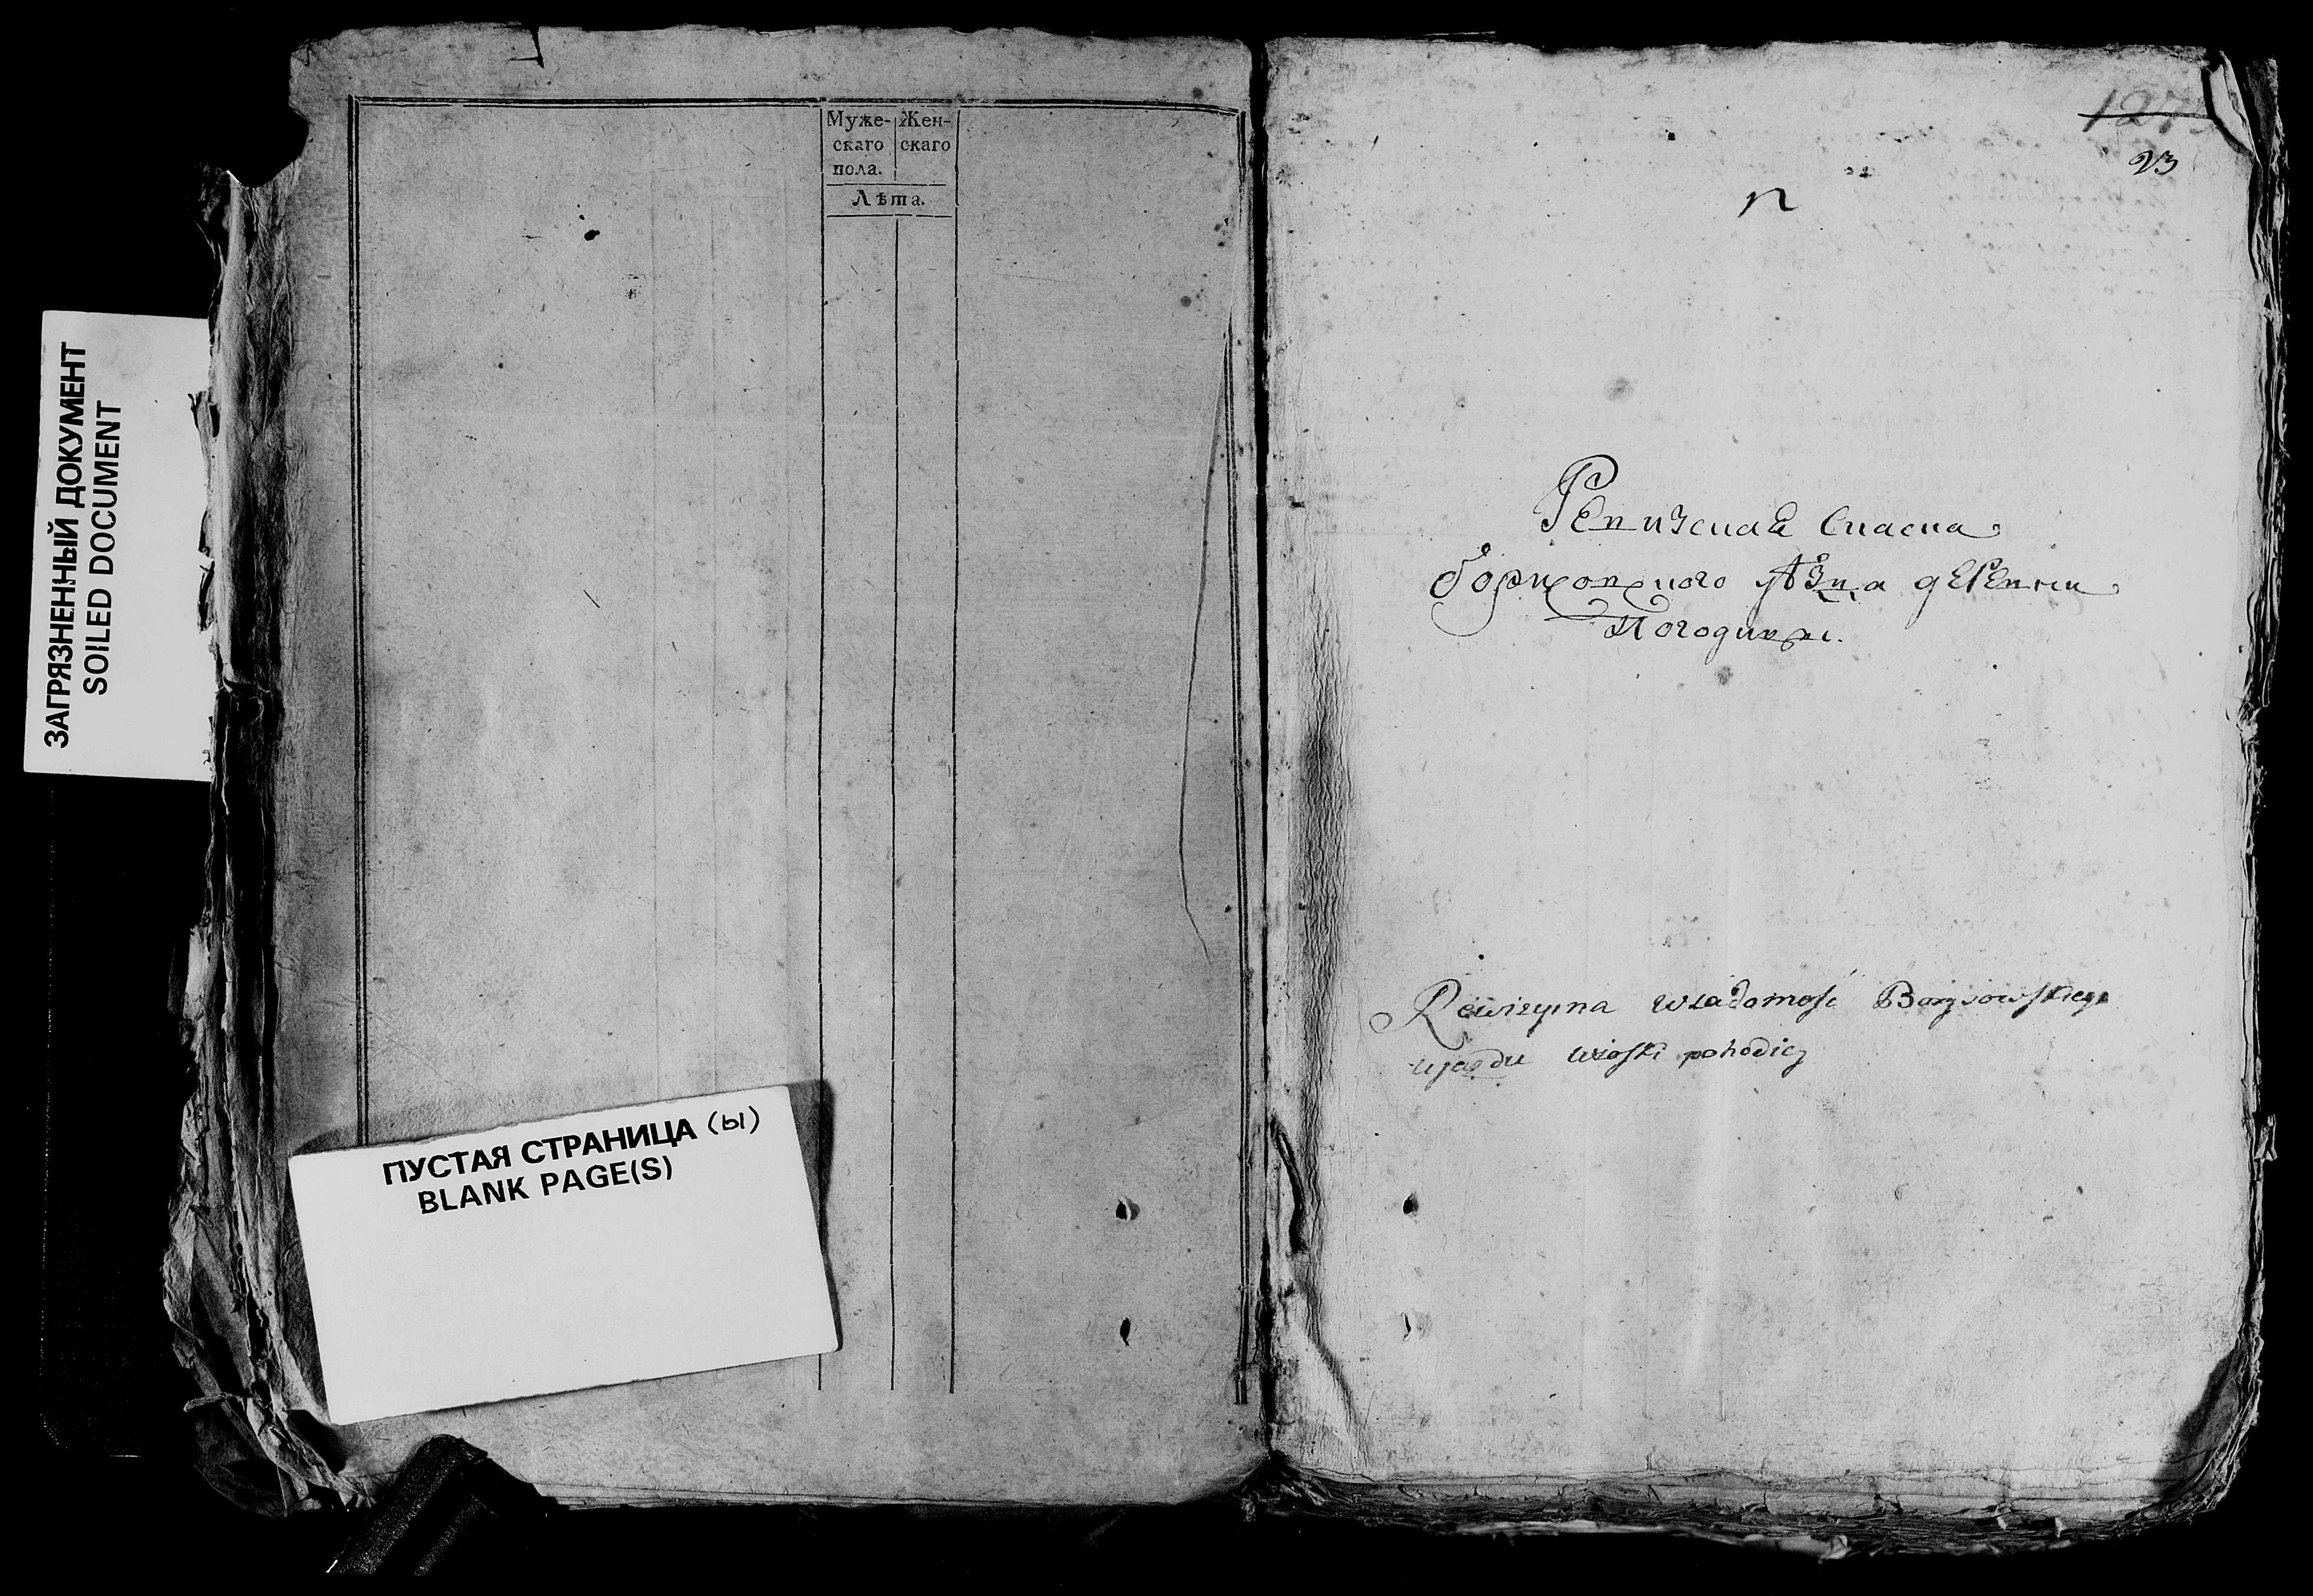 ЗАГРЯЗНЕННЫЙ ДОКУМЕНТ
SOILED DOCUMENT
Муже-
скаго
пола.
Жен-
скаго
Лѣта.
ПУСТАЯ СТРАНИЦА (ы)
BLANK PAGE(S)
127
23
п
Ревизская Скаска
Борисовского уѣзда деревни
Rewizyina wiadomość Borysowskiego
ujazdu wioski pohodicz